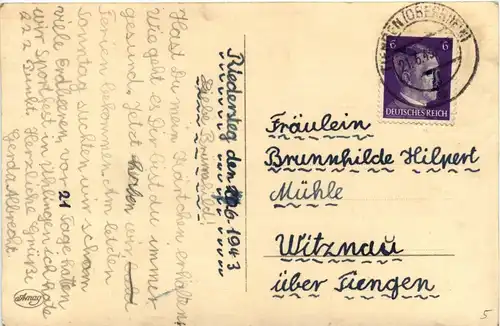 Riedersteg den 20.6.1943
Liebe Brunhild!
Hast Du mein Kärtchen erhalten.
Wie geht es Dir bist du immer
gesund. Jetzt haben wir
Ferien bekommen. Am letzten
Sonntag suchten wir schon
viele Erdbeeren, vor 21 Tage hatten
wir Sportfest in Ühlingen ich hate
222 Punkt. Herzliche Grüße
Gerda Albrecht
TIENGEN (OBERRHEIN)
6
6
DEUTSCHES REICH
Fräulein
Brunnhilde Hilpert
Mühle
Witznau
über Tiengen
5